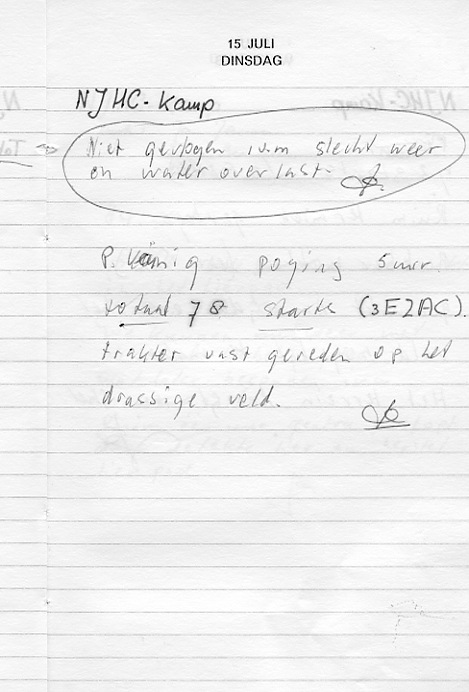 15 JULI
DINSDAG
NJHC-Kamp
Niet gevlogen ivm slecht weer
en water overlast.
P. König poging 5 uur.
totaal 78 starts (3E2AC).
trakter vast gereden op het
drassige veld.